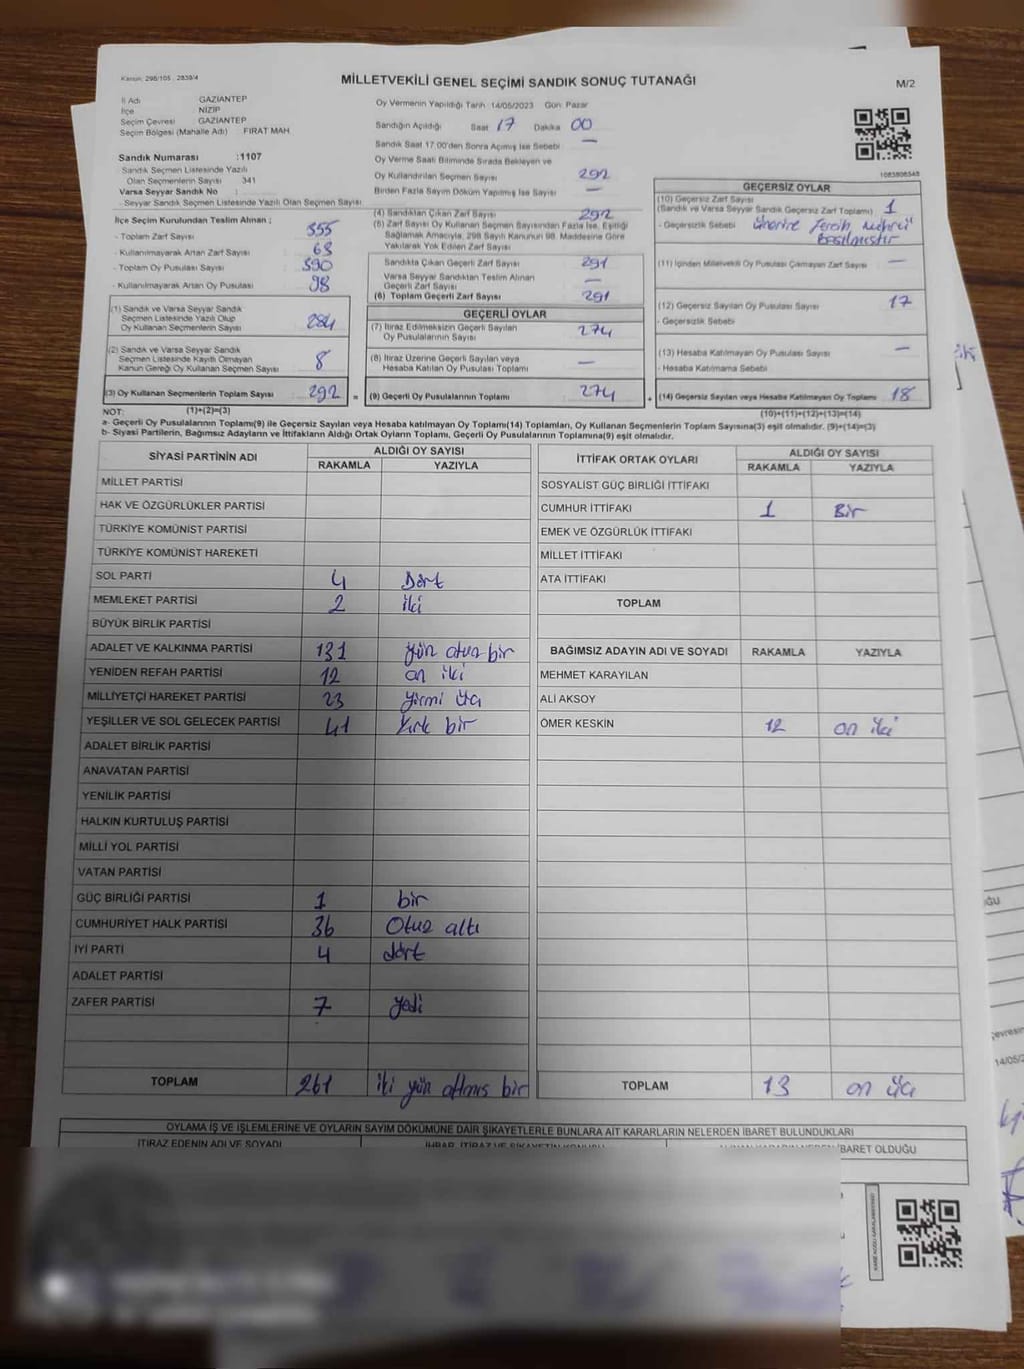 Kanun: 298/105 , 2839/4
MİLLETVEKİLİ GENEL SEÇİMİ SANDIK SONUÇ TUTANAĞI
M/2
İl Adı GAZİANTEP
İlçe NİZİP
Seçim Çevresi GAZİANTEP
Seçim Bölgesi (Mahalle Adı) FIRAT MAH
Sandık Numarası :1107
Sandık Seçmen Listesinde Yazılı
Olan Seçmenlerin Sayısı 341
Varsa Seyyar Sandık No :
- Seyyar Sandık Seçmen Listesinde Yazılı Olan Seçmen Sayısı
Oy Vermenin Yapıldığı Tarih 14/05/2023 Gün Pazar
Sandığın Açıldığı Saat 17 Dakika 00
Sandık Saat 17.00'den Sonra Açılmış İse Sebebi —
Oy Verme Saati Bitiminde Sırada Bekleyen ve
Oy Kullandırılan Seçmen Sayısı 292
Birden Fazla Sayım Döküm Yapılmış İse Sayısı —
1083808548
İlçe Seçim Kurulundan Teslim Alınan ;
- Toplam Zarf Sayısı : 355
- Kullanılmayarak Artan Zarf Sayısı : 63
- Toplam Oy Pusulası Sayısı : 390
- Kullanılmayarak Artan Oy Pusulası : 98
(1) Sandık ve Varsa Seyyar Sandık
Seçmen Listesinde Yazılı Olup
Oy Kullanan Seçmenlerin Sayısı 284
(2) Sandık ve Varsa Seyyar Sandık
Seçmen Listesinde Kayıtlı Olmayan
Kanun Gereği Oy Kullanan Seçmen Sayısı 8
(3) Oy Kullanan Seçmenlerin Toplam Sayısı 292 =
(1)+(2)=(3)
(4) Sandıktan Çıkan Zarf Sayısı 292
(5) Zarf Sayısı Oy Kullanan Seçmen Sayısından Fazla İse, Eşitliği
Sağlamak Amacıyla, 298 Sayılı Kanunun 98. Maddesine Göre
Yakılarak Yok Edilen Zarf Sayısı
Sandıkta Çıkan Geçerli Zarf Sayısı 291
Varsa Seyyar Sandıktan Teslim Alınan
Geçerli Zarf Sayısı —
(6) Toplam Geçerli Zarf Sayısı 291
GEÇERLİ OYLAR
(7) İtiraz Edilmeksizin Geçerli Sayılan
Oy Pusulalarının Sayısı 274
(8) İtiraz Üzerine Geçerli Sayılan veya
Hesaba Katılan Oy Pusulası Toplamı —
(9) Geçerli Oy Pusulalarının Toplamı 274 +
GEÇERSİZ OYLAR
(10) Geçersiz Zarf Sayısı
(Sandık ve Varsa Seyyar Sandık Geçersiz Zarf Toplamı) 1
- Geçersizlik Sebebi üzerine Tercih Mührü
Basılmıştır
(11) İçinden Milletvekili Oy Pusulası Çıkmayan Zarf Sayısı —
(12) Geçersiz Sayılan Oy Pusulası Sayısı 17
- Geçersizlik Sebebi
(13) Hesaba Katılmayan Oy Pusulası Sayısı —
- Hesaba Katılmama Sebebi
(14) Geçersiz Sayılan veya Hesaba Katılmayan Oy Toplamı 18
(10)+(11)+(12)+(13)=(14)
NOT:
a- Geçerli Oy Pusulalarının Toplamı(9) ile Geçersiz Sayılan veya Hesaba Katılmayan Oy Toplamı(14) Toplamları, Oy Kullanan Seçmenlerin Toplam Sayısına(3) eşit olmalıdır. (9)+(14)=(3)
b- Siyasi Partilerin, Bağımsız Adayların ve İttifakların Aldığı Ortak Oyların Toplamı, Geçerli Oy Pusulalarının Toplamına(9) eşit olmalıdır.
SİYASİ PARTİNİN ADI ALDIĞI OY SAYISI
RAKAMLA YAZIYLA
MİLLET PARTİSİ
HAK VE ÖZGÜRLÜKLER PARTİSİ
TÜRKİYE KOMÜNİST PARTİSİ
TÜRKİYE KOMÜNİST HAREKETİ
SOL PARTİ 4 Dört
MEMLEKET PARTİSİ 2 iki
BÜYÜK BİRLİK PARTİSİ
ADALET VE KALKINMA PARTİSİ 131 yüz otuz bir
YENİDEN REFAH PARTİSİ 12 on iki
MİLLİYETÇİ HAREKET PARTİSİ 23 yirmi üç
YEŞİLLER VE SOL GELECEK PARTİSİ 41 kırk bir
ADALET BİRLİK PARTİSİ
ANAVATAN PARTİSİ
YENİLİK PARTİSİ
HALKIN KURTULUŞ PARTİSİ
MİLLİ YOL PARTİSİ
VATAN PARTİSİ
GÜÇ BİRLİĞİ PARTİSİ 1 bir
CUMHURİYET HALK PARTİSİ 36 Otuz altı
İYİ PARTİ 4 dört
ADALET PARTİSİ
ZAFER PARTİSİ 7 yedi
TOPLAM 261 iki yüz altmış bir
İTTİFAK ORTAK OYLARI ALDIĞI OY SAYISI
RAKAMLA YAZIYLA
SOSYALİST GÜÇ BİRLİĞİ İTTİFAKI
CUMHUR İTTİFAKI 1 Bir
EMEK VE ÖZGÜRLÜK İTTİFAKI
MİLLET İTTİFAKI
ATA İTTİFAKI
TOPLAM
BAĞIMSIZ ADAYIN ADI VE SOYADI RAKAMLA YAZIYLA
MEHMET KARAYILAN
ALİ AKSOY
ÖMER KESKİN 12 on iki
TOPLAM 13 on üç
OYLAMA İŞ VE İŞLEMLERİNE VE OYLARIN SAYIM DÖKÜMÜNE DAİR ŞİKAYETLERLE BUNLARA AİT KARARLARIN NELERDEN İBARET BULUNDUKLARI
İTİRAZ EDENİN ADI VE SOYADI İHBAR, İTİRAZ VE ŞİKAYETİN KONUSU İBARET OLDUĞU
14/05/2